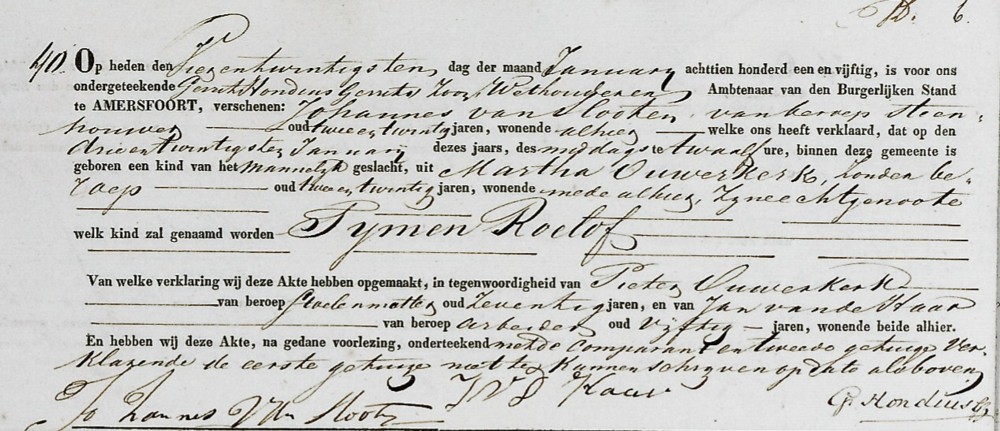 D. 6.
40. Op heden den Vierentwintigsten dag der maand January achttien honderd een en vijftig, is voor ons
ondergeteekende Gerrit Hondius Gerrits Zoon, Wethouder en Ambtenaar van den Burgerlijken Stand
te AMERSFOORT, verschenen: Johannes van Slooten van beroep steen-
houwer oud twee en twintig jaren, wonende alhier welke ons heeft verklaard, dat op den
drieentwintigsten January dezes jaars, des middags twaalf ure, binnen deze gemeente is
geboren een kind van het Mannelijk geslacht, uit Martha Ouwerkerk, zonder be-
roep oud twee en twintig jaren, wonende mede alhier, Zyne echtgenoote
welk kind zal genaamd worden Tymen Roelof
Van welke verklaring wij deze Akte hebben opgemaakt, in tegenwoordigheid van Pieter Ouwerkerk
van beroep Stoelenmatter oud Zeventig jaren, en van Jan van de Haar
van beroep arbeider oud Vijftig jaren, wonende beide alhier.
En hebben wij deze Akte, na gedane voorlezing, onderteekend met de comparant en tweede getuige Ver-
klarende de eerste getuige niet te kunnen schrijven op dato als boven
Johannes Van Slooten JVD Haar G. Hondius Gz